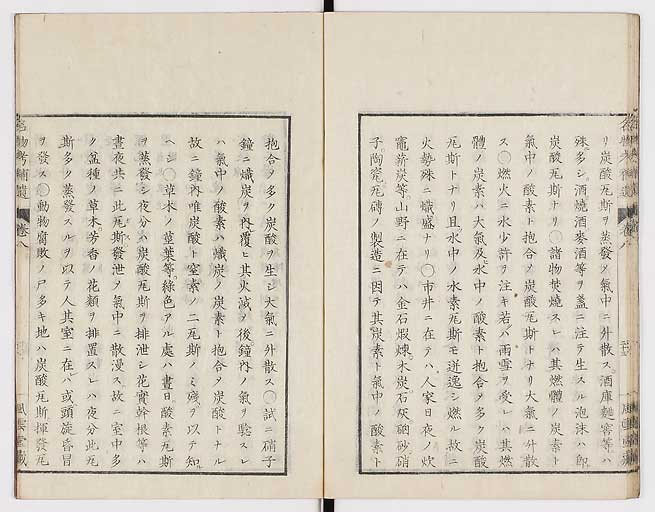 リ炭酸瓦斯ヲ蒸發ク氣中ニ外散ス酒庫麹窖等ハ
殊多シ酒燒酒麥酒等ヲ盞ニ注テ生スル泡沫ハ即
炭酸瓦斯ナリ〇諸物焚燒スレハ其燃體ノ炭素ト
氣中ノ酸素ト抱合メ炭酸瓦斯トナリ大氣ニ外散
ス〇燃火ニ水少許ヲ注キ若ハ雨雪ヲ受レハ其燃
體ノ炭素ハ大氣及水中ノ酸素ト抱合メ多ク炭酸
瓦斯トナリ且水中ノ水素瓦斯モ迸逸シ燃ル故ニ
火勢殊ニ熾盛ナリ〇市井ニ在テハ人家日夜ノ炊
竈薪炭等山野ニ在テハ金石煆煉木炭石灰硇砂硝
子陶瓷瓦磚ノ製造ニ因テ其炭素ト氣中ノ酸素ト
抱合メ多ク炭酸ヲ生シ大氣ニ外散ス〇試ニ硝子
鐘ニ熾炭ヲ内覆ヒ其火滅メ後鐘内ノ氣ヲ驗スレ
ハ氣中ノ酸素ハ熾炭ノ炭素ト抱合メ炭酸トナル
故ニ鐘内唯炭酸ト窒素ノ二瓦斯ノミ殘ヲ以テ知
ヘシ〇草木ノ莖葉等綠色アル處ハ晝日酸素瓦斯
ヲ蒸發シ夜分ハ炭酸瓦斯ヲ排泄シ花實幹根等ハ
晝夜共ニ此瓦斯發泄メ氣中ニ散漫ス故ニ室中多
ク盆種ノ草木芳香ノ花類ヲ排置スレハ夜分此瓦
斯多ク蒸發スルヲ以テ人其室ニ在ハ或頭旋昏冒
ヲ發ス〇動物腐敗ノ尸多キ地ハ炭酸瓦斯揮發瓦
名物考補遺 卷八
風雲堂藏